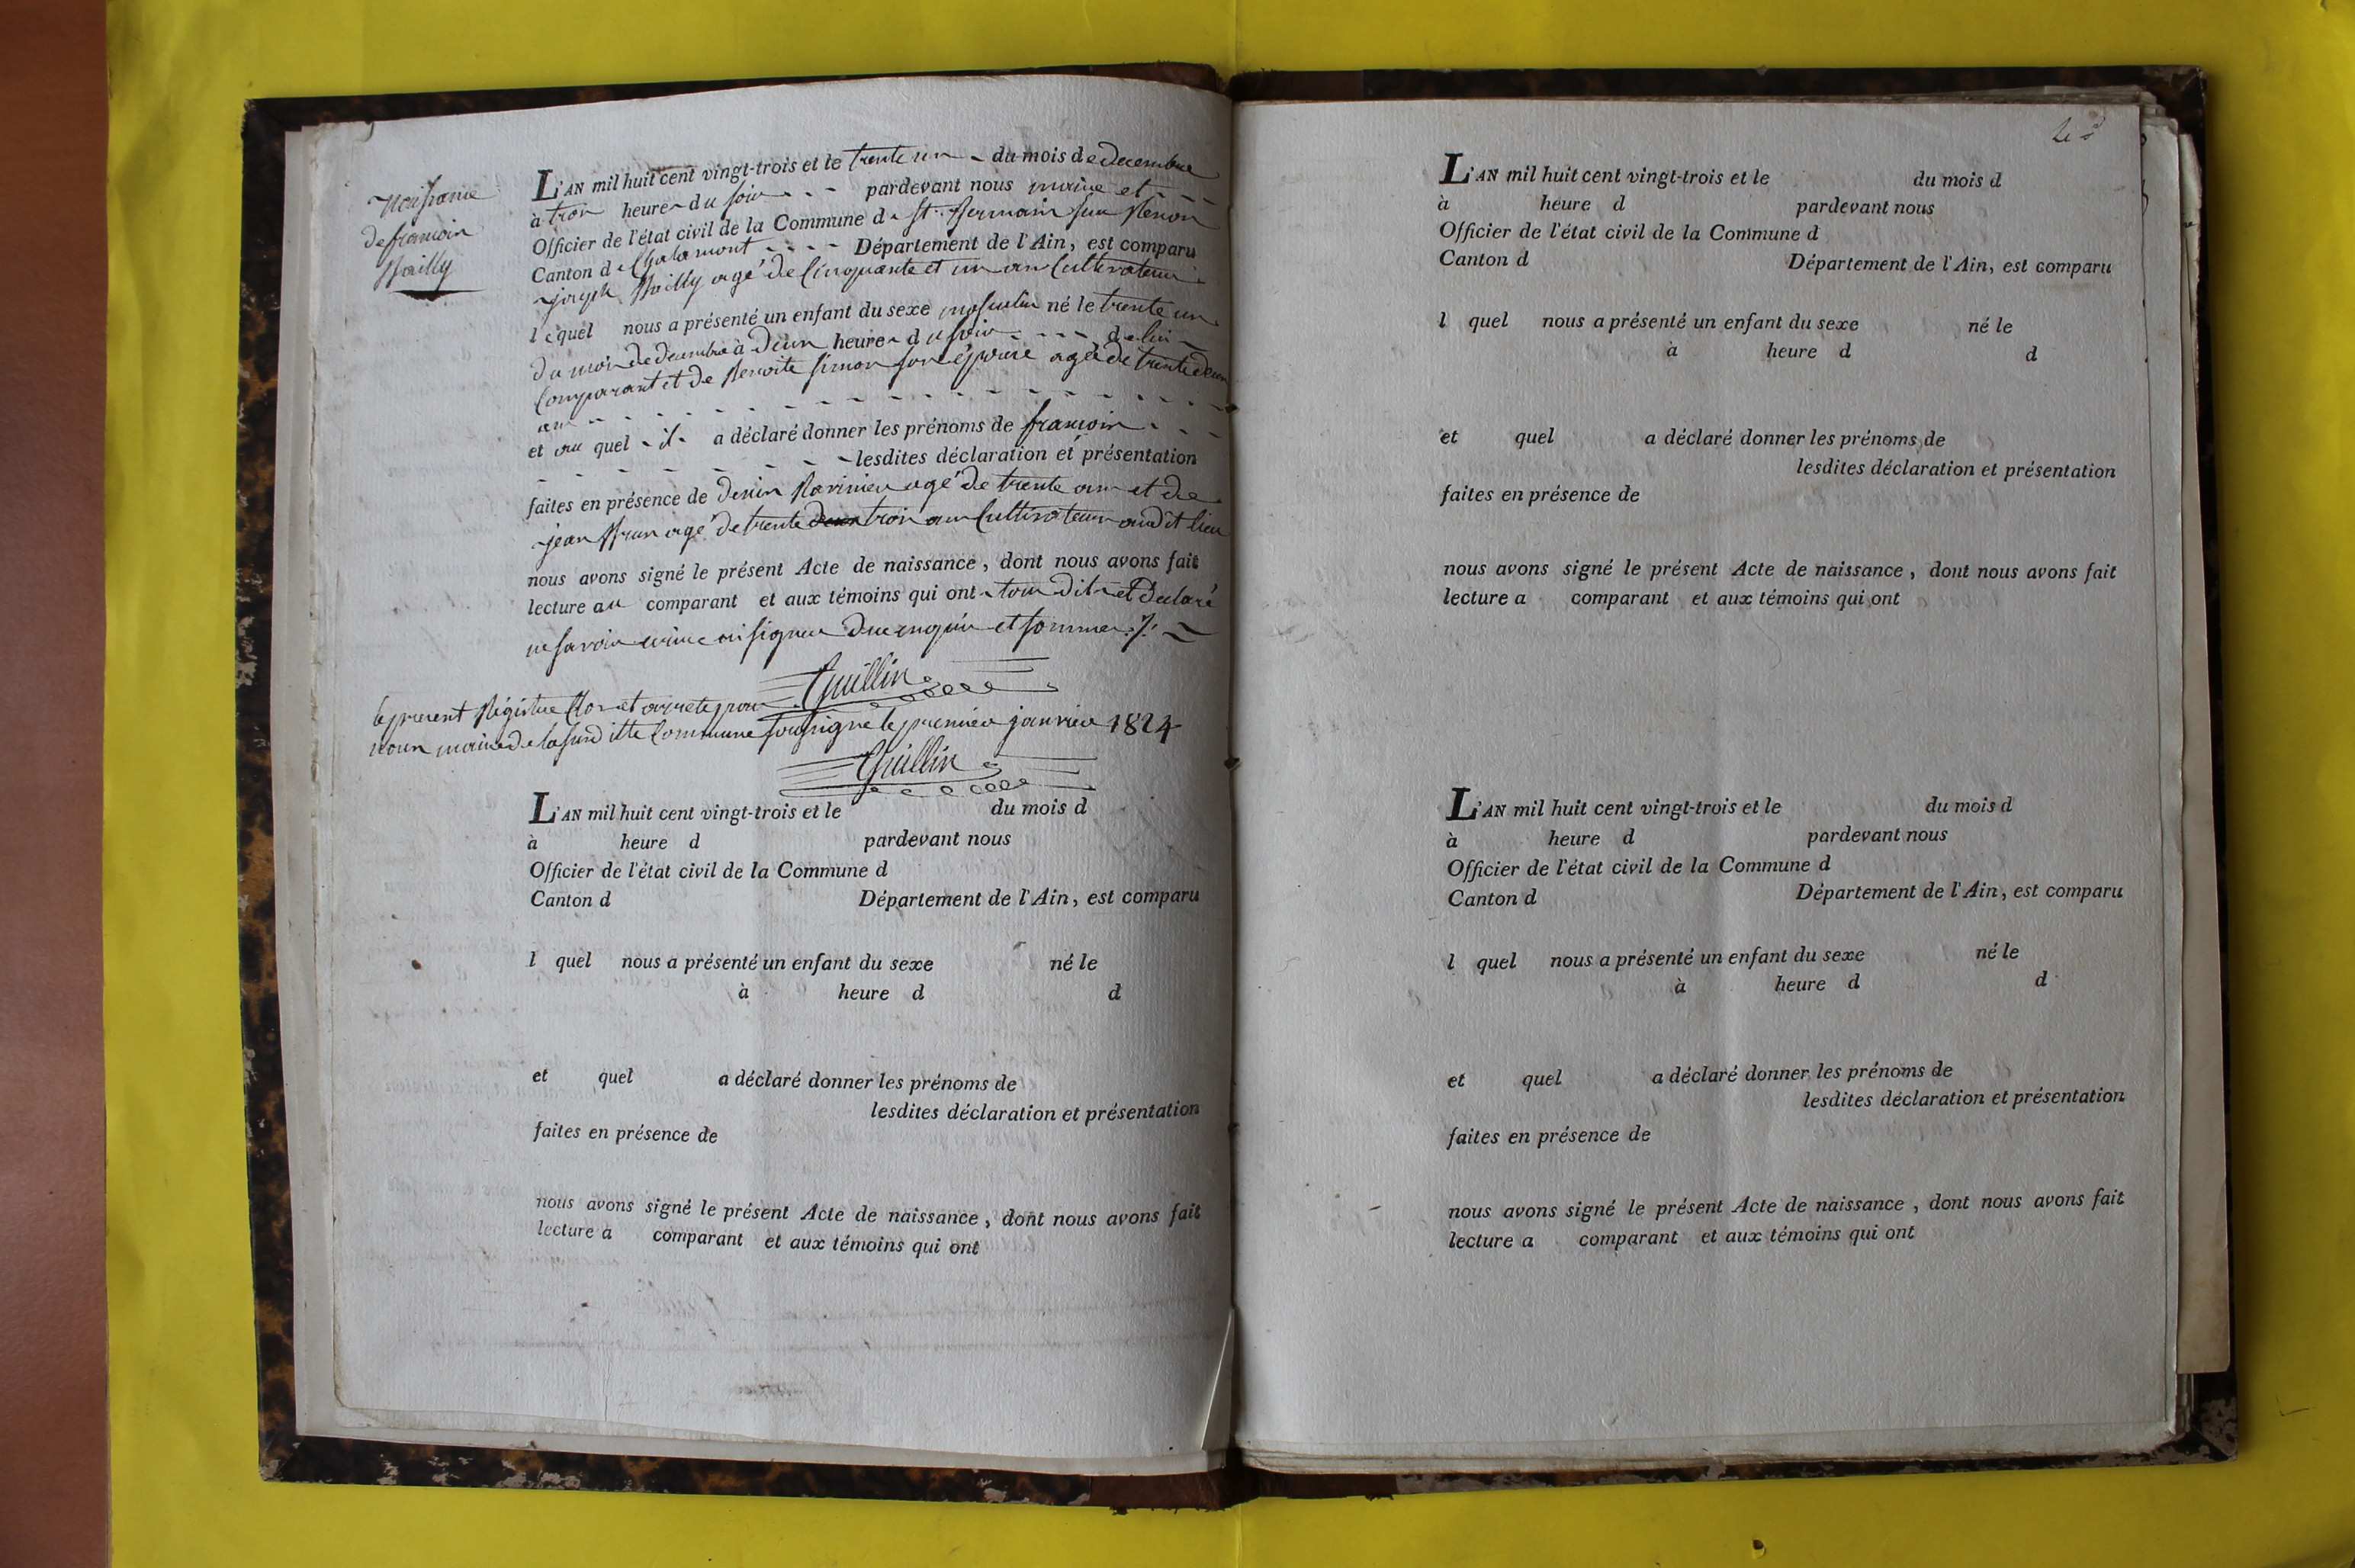 Naissance
de francois
Bailly
L'AN mil huit cent vingt-trois et le trente un du mois de decembre
à trois heures du soir pardevant nous maire et
Officier de l'état civil de la Commune de St. Germain sur Renon
Canton de Chalamont Département de l'Ain, est comparu
joseph Bailly agé de Cinquante et un ans Cultivateur
lequel nous a présenté un enfant du sexe masculin né le trente un
du mois de decembre à deux heures du soir de lui
Comparant et de Benoite Simon son épouse agée de trente deux
ans
et au quel il a déclaré donner les prénoms de francois
lesdites déclaration et présentation
faites en présence de Denis agé de trente ans et de
jean Brun agé de trente deux trois ans Cultivateurs audit lieu
nous avons signé le présent Acte de naissance, dont nous avons fait
lecture au comparant et aux témoins qui ont tous dit et Declaré
ne savoir ecrire ni signer De ce enquis et sommes ./.
Guillin
le present Régistre Clos et arreté par
nous maire de la susditte Commune soussigné le premier janvier 1824
Guillin
L'AN mil huit cent vingt-trois et le du mois d
à heure d pardevant nous
Officier de l'état civil de la Commune d
Canton d Département de l'Ain, est comparu
l quel nous a présenté un enfant du sexe né le
à heure d d
et quel a déclaré donner les prénoms de
lesdites déclaration et présentation
faites en présence de
nous avons signé le présent Acte de naissance, dont nous avons fait
lecture a comparant et aux témoins qui ont
L'AN mil huit cent vingt-trois et le du mois d
à heure d pardevant nous
Officier de l'état civil de la Commune d
Canton d Département de l'Ain, est comparu
l quel nous a présenté un enfant du sexe né le
à heure d d
et quel a déclaré donner les prénoms de
lesdites déclaration et présentation
faites en présence de
nous avons signé le présent Acte de naissance, dont nous avons fait
lecture a comparant et aux témoins qui ont
L'AN mil huit cent vingt-trois et le du mois d
à heure d pardevant nous
Officier de l'état civil de la Commune d
Canton d Département de l'Ain, est comparu
l quel nous a présenté un enfant du sexe né le
à heure d d
et quel a déclaré donner les prénoms de
lesdites déclaration et présentation
faites en présence de
nous avons signé le présent Acte de naissance, dont nous avons fait
lecture a comparant et aux témoins qui ont